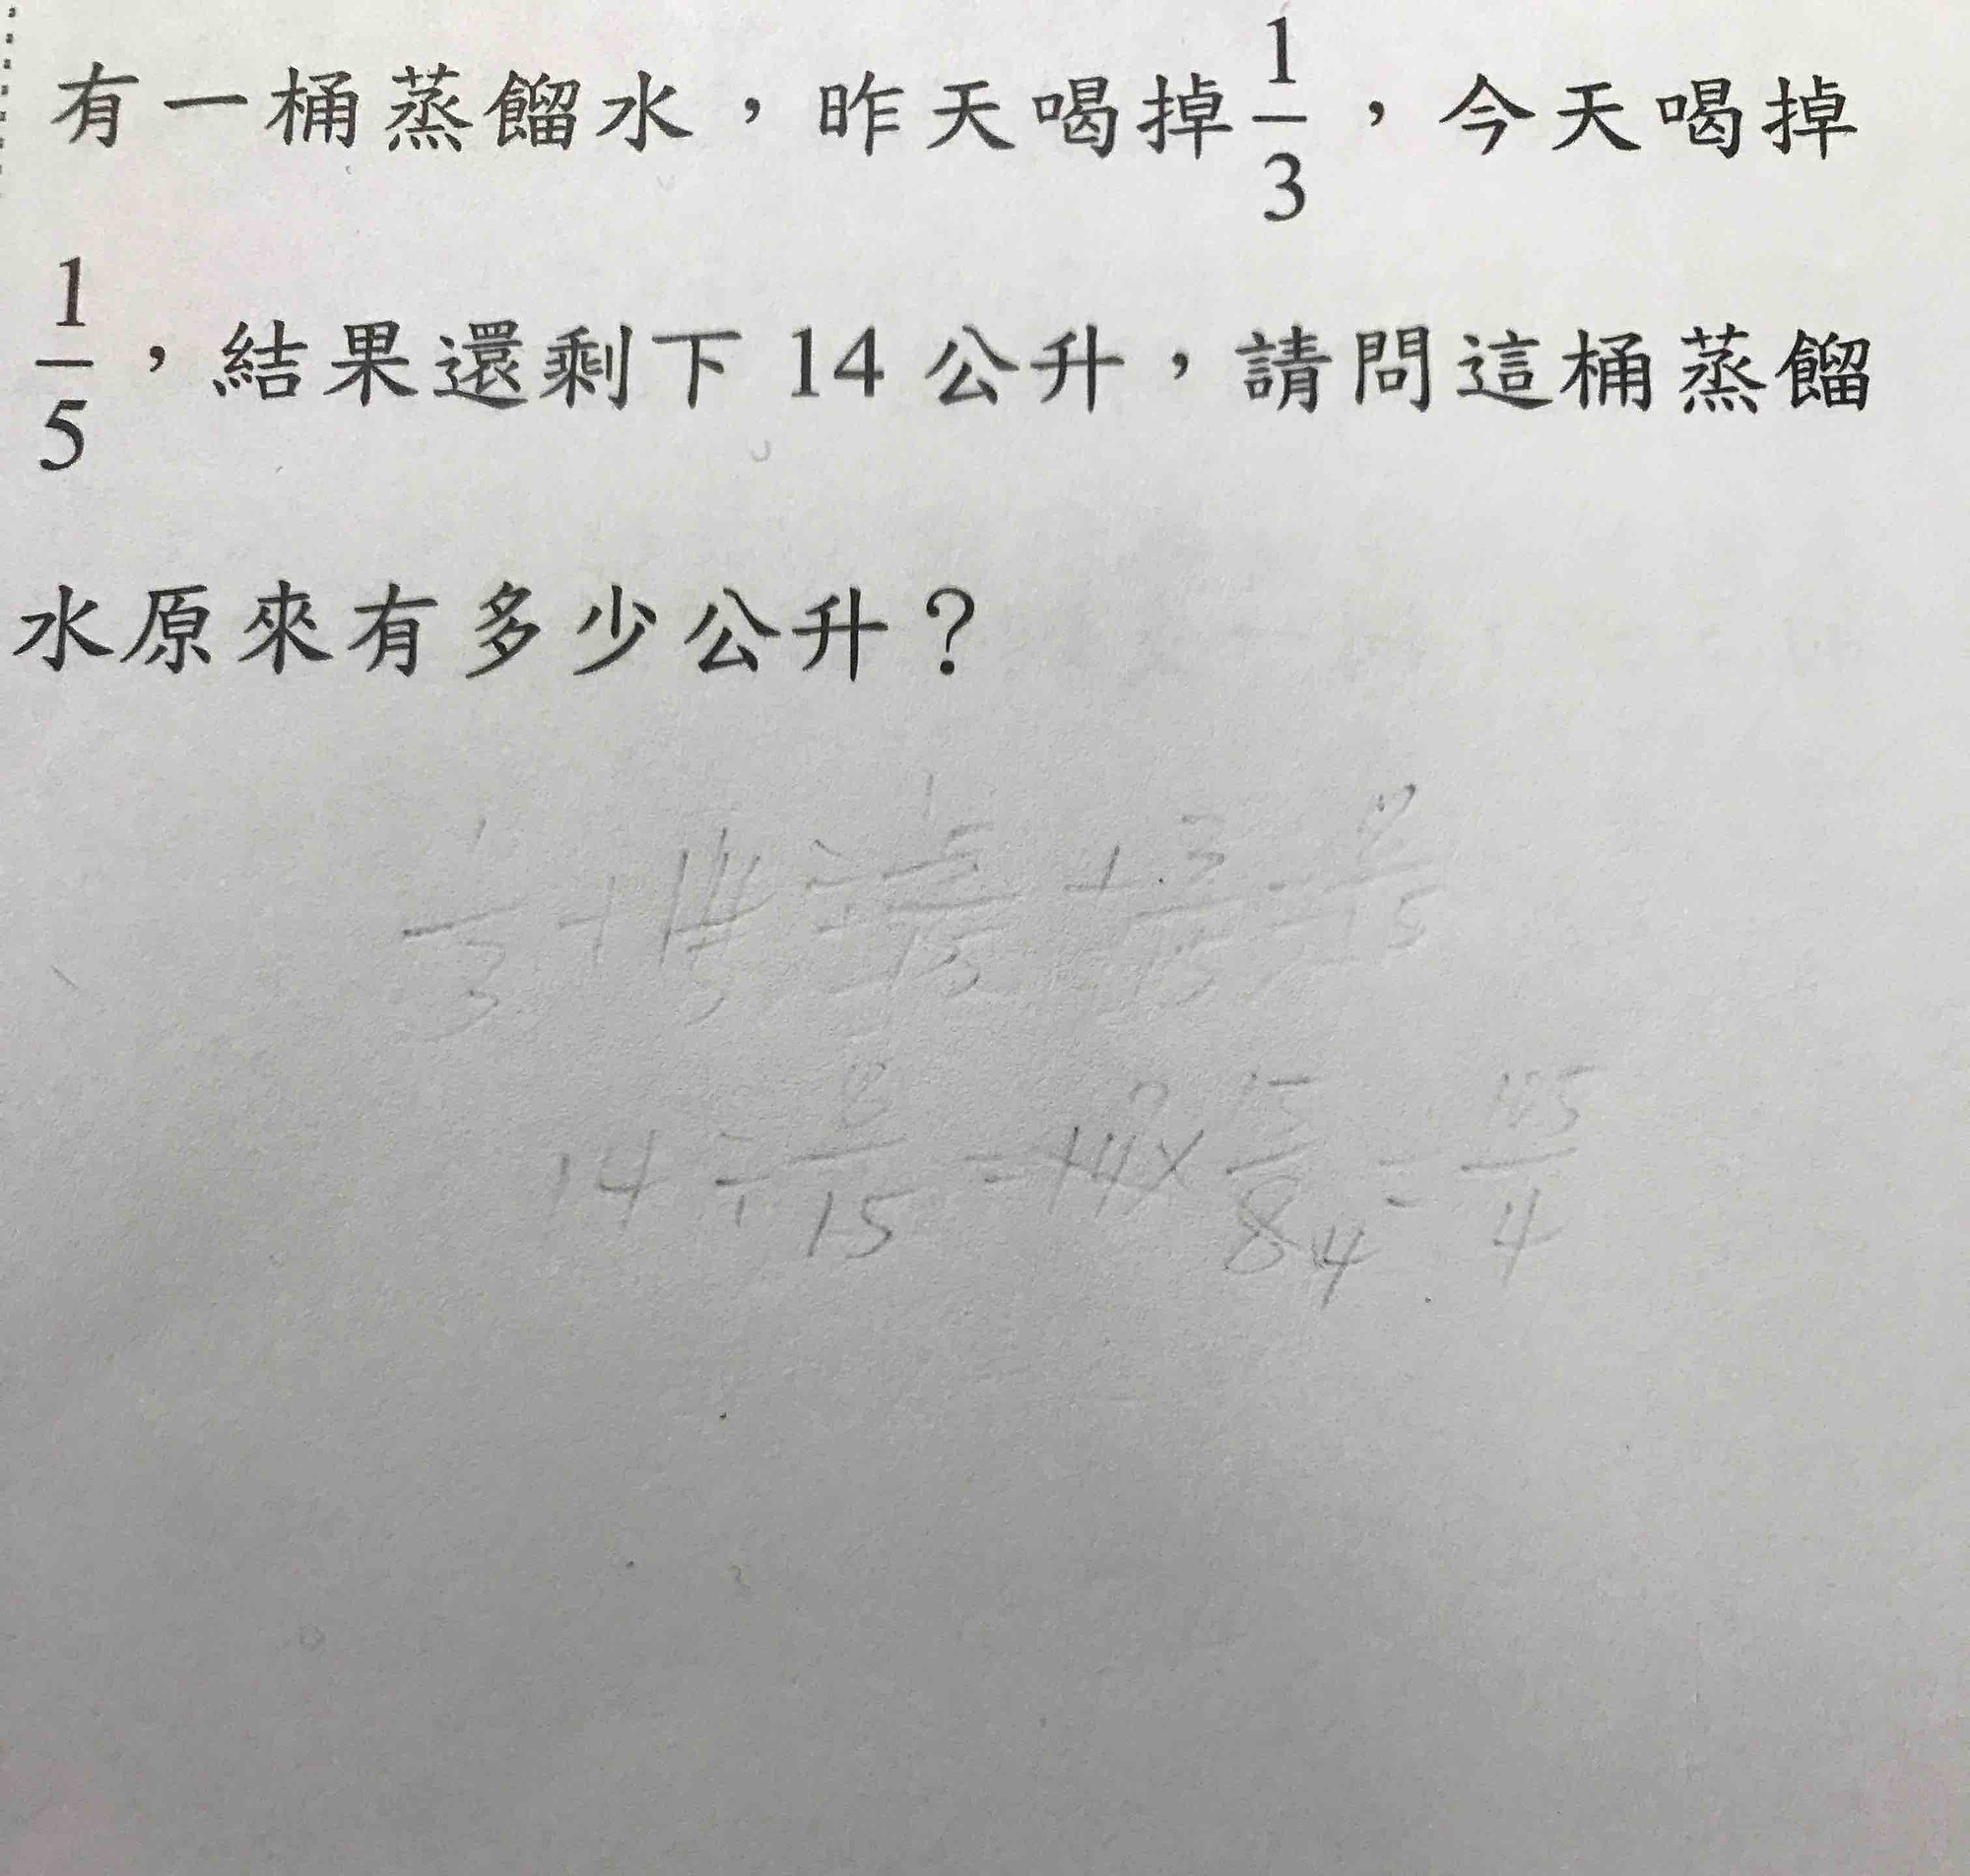 有一桶蒸餾水，昨天喝掉1/3，今天喝掉
1/5，結果還剩下 14 公升，請問這桶蒸餾
水原來有多少公升？
14 ÷ 8/15 = 14 7 × 15/8 4 =